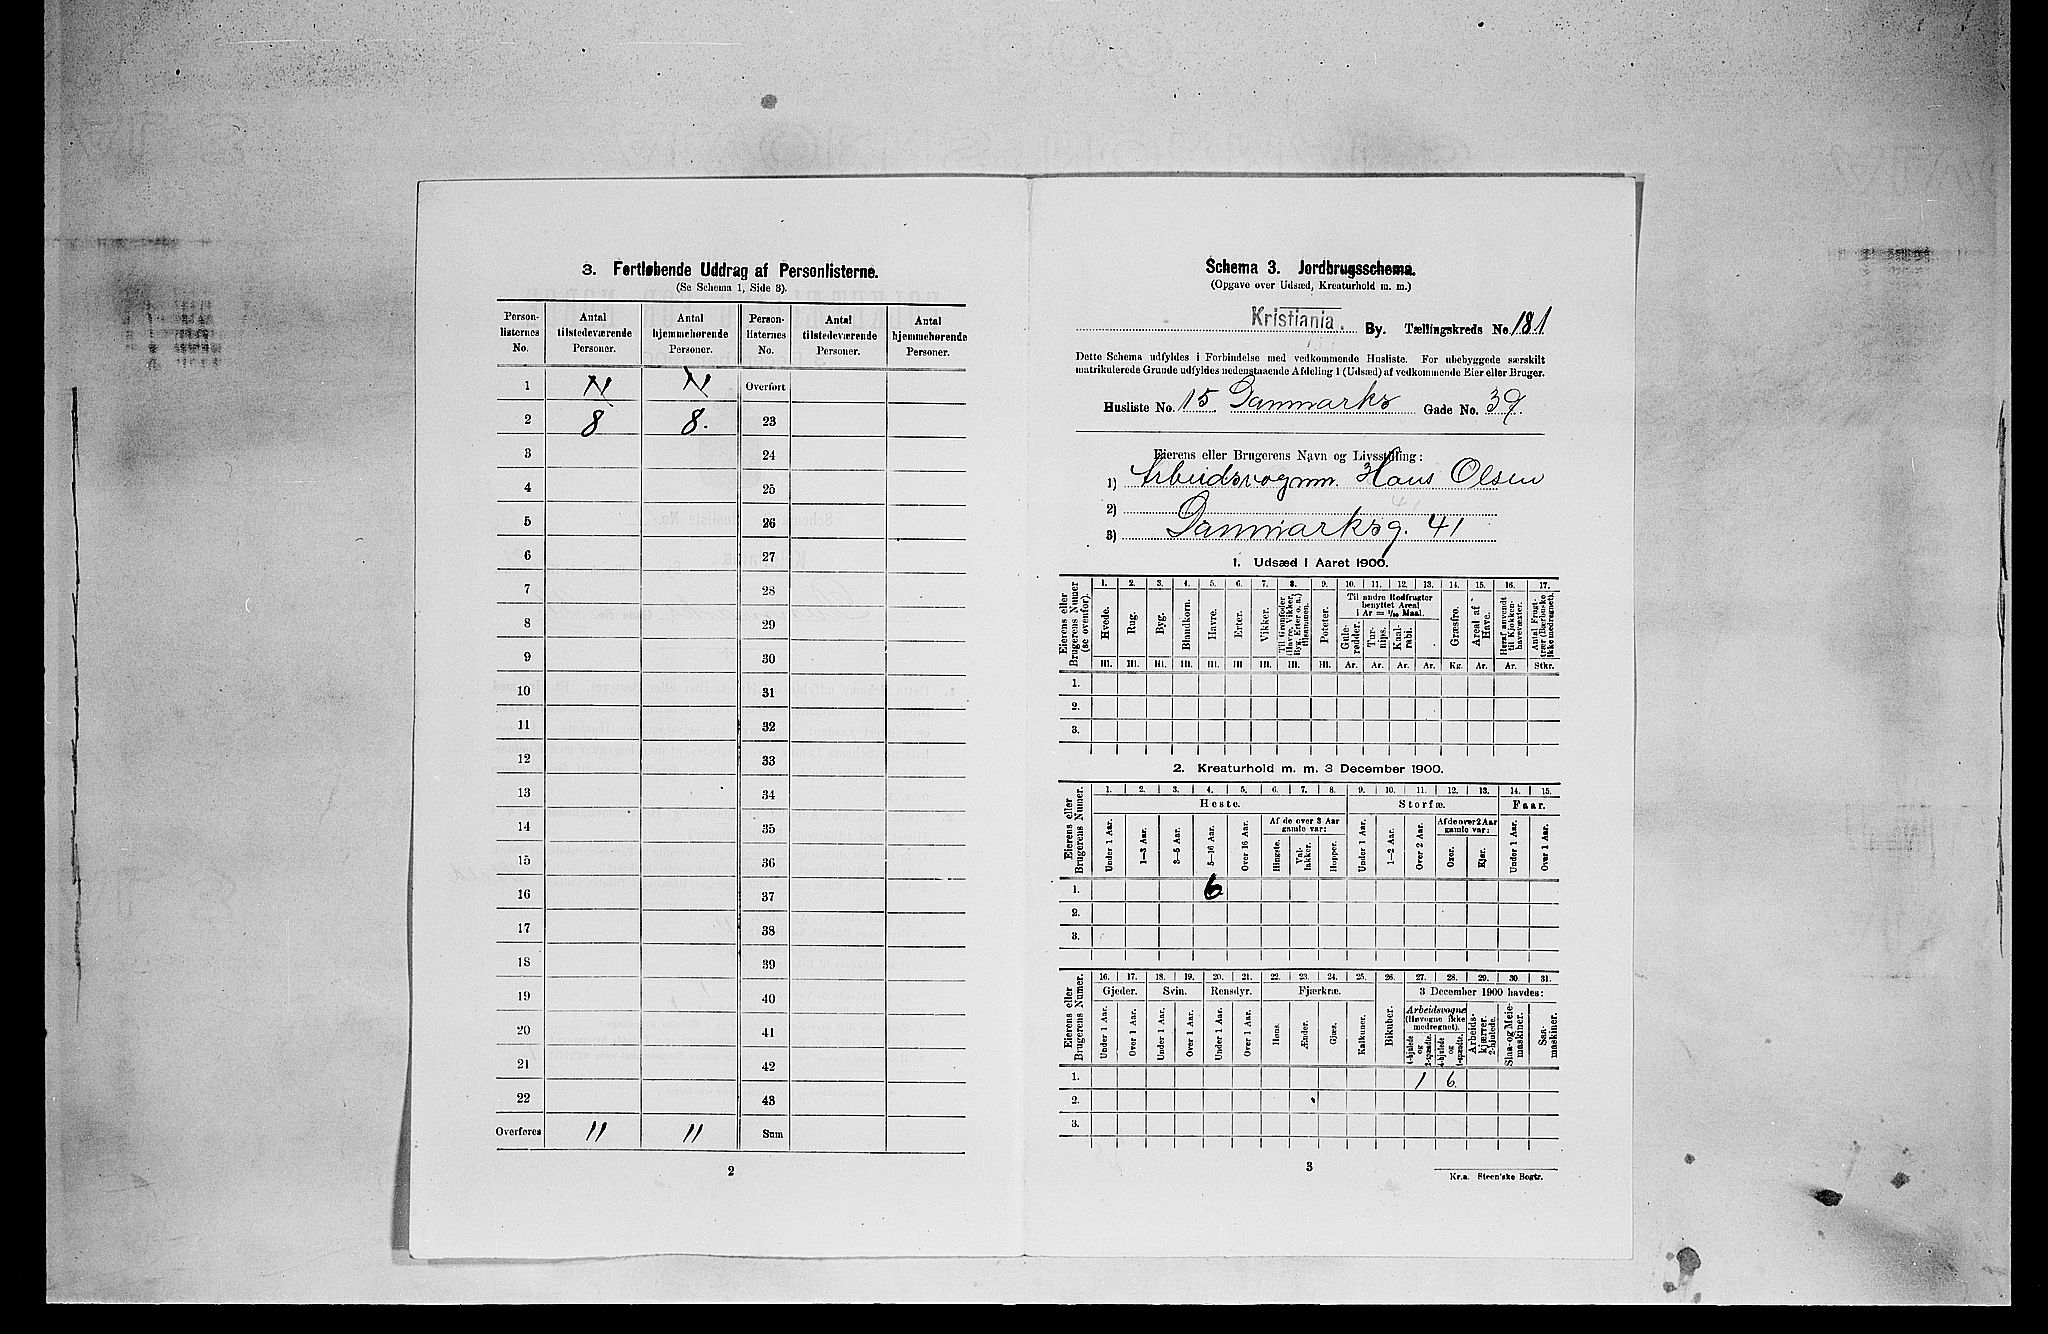 3. Fortløbende Uddrag af Personlisterne.
(Se Schema 1, Side 3).
Person-listernes No. Antal tilstedeværende Personer. Antal hjemmehørende Personer. Person-listernes No. Antal tilstedeværende Personer. Antal hjemmehørende Personer.
1 Overført
2 8 8. 23
3 24
4 25
5 26
6 27
7 28
8 29
9 30
10 31
11 32
12 33
13 34
14 35
15 36
16 37
17 38
18 39
19 40
20 41
21 42
22 43
Overføres 11 11 Sum
2
Schema 3. Jordbrugsschema.
(Opgave over Udsæd, Kreaturhold m. m.)
Kristiania. By. Tællingskreds No. 181
Dette Schema udfyldes i Forbindelse med vedkommende Husliste. For ubebyggede særskilt
matrikulerede Grunde udfyldes nedenstaaende Afdeling 1 (Udsæd) af vedkommende Eier eller Bruger.
Husliste No. 15. Danmarks Gade No. 39.
Eierens eller Brugerens Navn og Livsstilling:
1) Arbeidsvognm. Hans Olsen
2)
3) Danmarksg. 41
1. Udsæd i Aaret 1900.
Eierens eller Brugerens Numer (se ovenfor).
1. 2. 3. 4. 5. 6. 7. 8. 9. 10. 11. 12. 13. 14. 15. 16. 17.
Til andre Rodfrugter benyttet Areal i Ar = 1/10 Maal.
Hvede. Rug. Byg. Blandkorn. Havre. Erter. Vikker. Til Grønfoder Havre, Vikker, Byg, Erter o. a.) tilsammen. Poteter. Gule-rødder. Tur-nips. Kaal-rabi. Græsfrø. Areal af Have. Heraf anvendt til Kjøkken-havevæxter. Antal Frugt-trær (Bærbuske ikke medregnet).
Hl. Hl. Hl. Hl. Hl. Hl. Hl. Hl. Hl. Ar. Ar. Ar. Ar. Kg. Ar. Ar. Stkr.
1.
2.
3.
2. Kreaturhold m. m. 3 December 1900.
Eierens eller Brugerens Numer.
1. 2. 3. 4. 5. 6. 7. 8. 9. 10. 11. 12. 13. 14. 15.
Heste. Storfæ. Faar.
Af de over 3 Aar gamle var: Af de over 2 Aar gamle var:
Under 1 Aar. 1—3 Aar. 3—5 Aar. 5—16 Aar. Over 16 Aar. Hingste. Val-lakker. Hopper. Under 1 Aar. 1—2 Aar. Over 2 Aar. Oxer. Kjør. Under 1 Aar. Over 1 Aar.
1. 6
2.
3.
Eierens eller Brugerens Numer.
16. 17. 18. 19. 20. 21. 22. 23. 24. 25. 26. 27. 28. 29. 30. 31.
Gjeder. Svin. Rensdyr. Fjærkræ. 3 December 1900 havdes:
Arbeidsvogne (Høvogne ikke medregnet).
Under 1 Aar. Over 1 Aar. Under 1 Aar. Over 1 Aar. Under 1 Aar. Over 1 Aar. Høns. Ænder. Gjæs. Kalkuner. Bikuber. 4-hjulede og 2-spændte. 4-hjulede og 1-spændte. Arbeids-kjærrer. 2-hjulede. Slaa- og Meie-maskiner. Saa-maskiner.
1. 1 6
2.
3.
3
Kr.a. Steen'ske Bogtr.